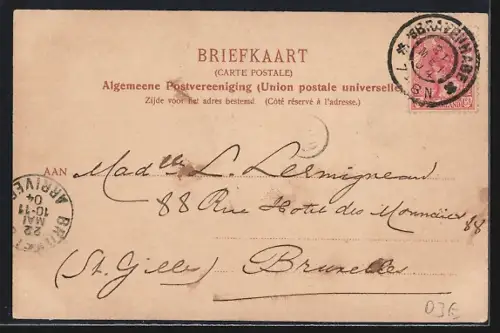 BRIEFKAART
(CARTE POSTALE)
Algemeene Postvereeniging (Union postale universelle)
Zijde voor het adres bestemd. (Côté réservé à l'adresse.)
'SGRAVENHAGE
AAN Madlle L. Lermigneau
88 Rue Hotel des Monnaies 88
(St. Gilles) Bruxelles
ARRIVEE
22
MAI
10-11
04
D3E